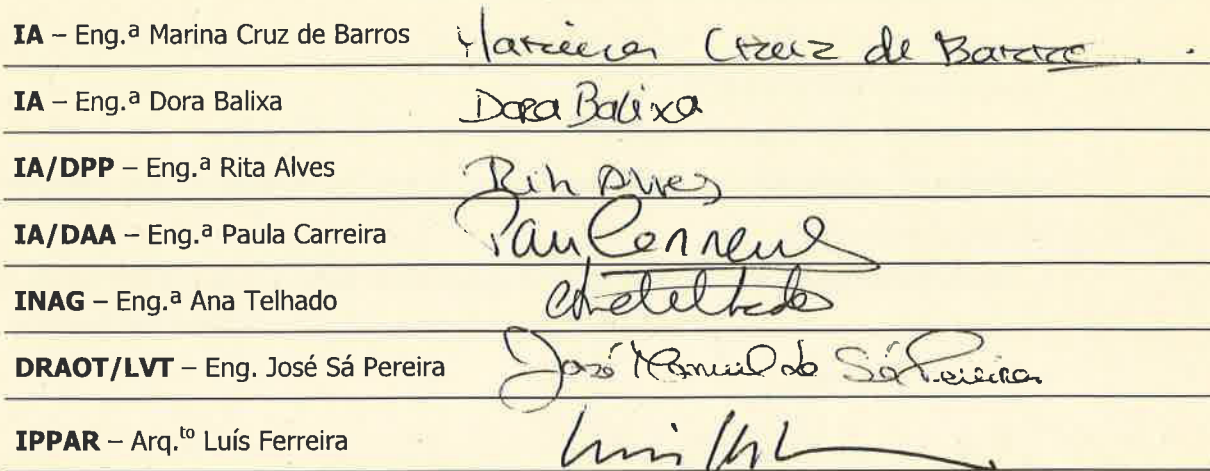 IA – Eng.ª Marina Cruz de Barros Marina Cruz de Barros.
IA – Eng.ª Dora Balixa Dora Balixa
IA/DPP – Eng.ª Rita Alves Rita Alves
IA/DAA – Eng.ª Paula Carreira Paula Carreira
INAG – Eng.ª Ana Telhado Ana Telhado
DRAOT/LVT – Eng. José Sá Pereira José Manuel de Sá Pereira
IPPAR – Arq.to Luís Ferreira Luís